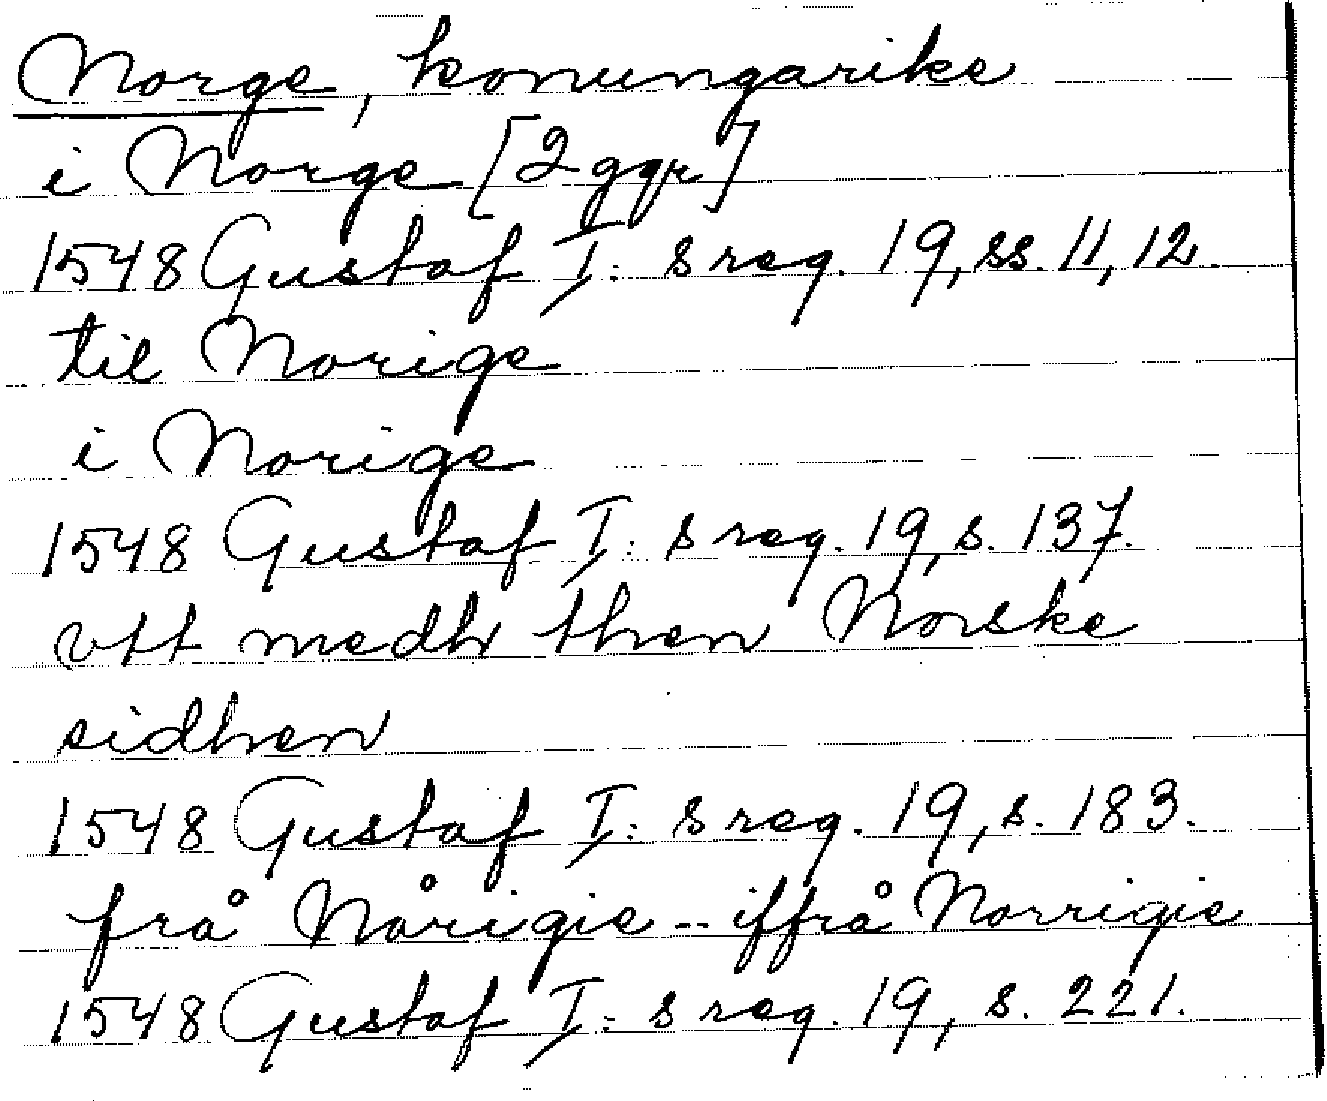 Norge, konungarike
i Norge [2 ggr]
1548 Gustaf I:s reg. 19, ss. 11, 12.
til Norige
i Norige
1548 Gustaf I:s reg. 19, s. 137.
vtt medh then Norske
sidhen
1548 Gustaf I:s reg. 19, s. 183.
frå Nårigie -- iffrå Norrigie
1548 Gustaf I:s reg. 19, s. 221.